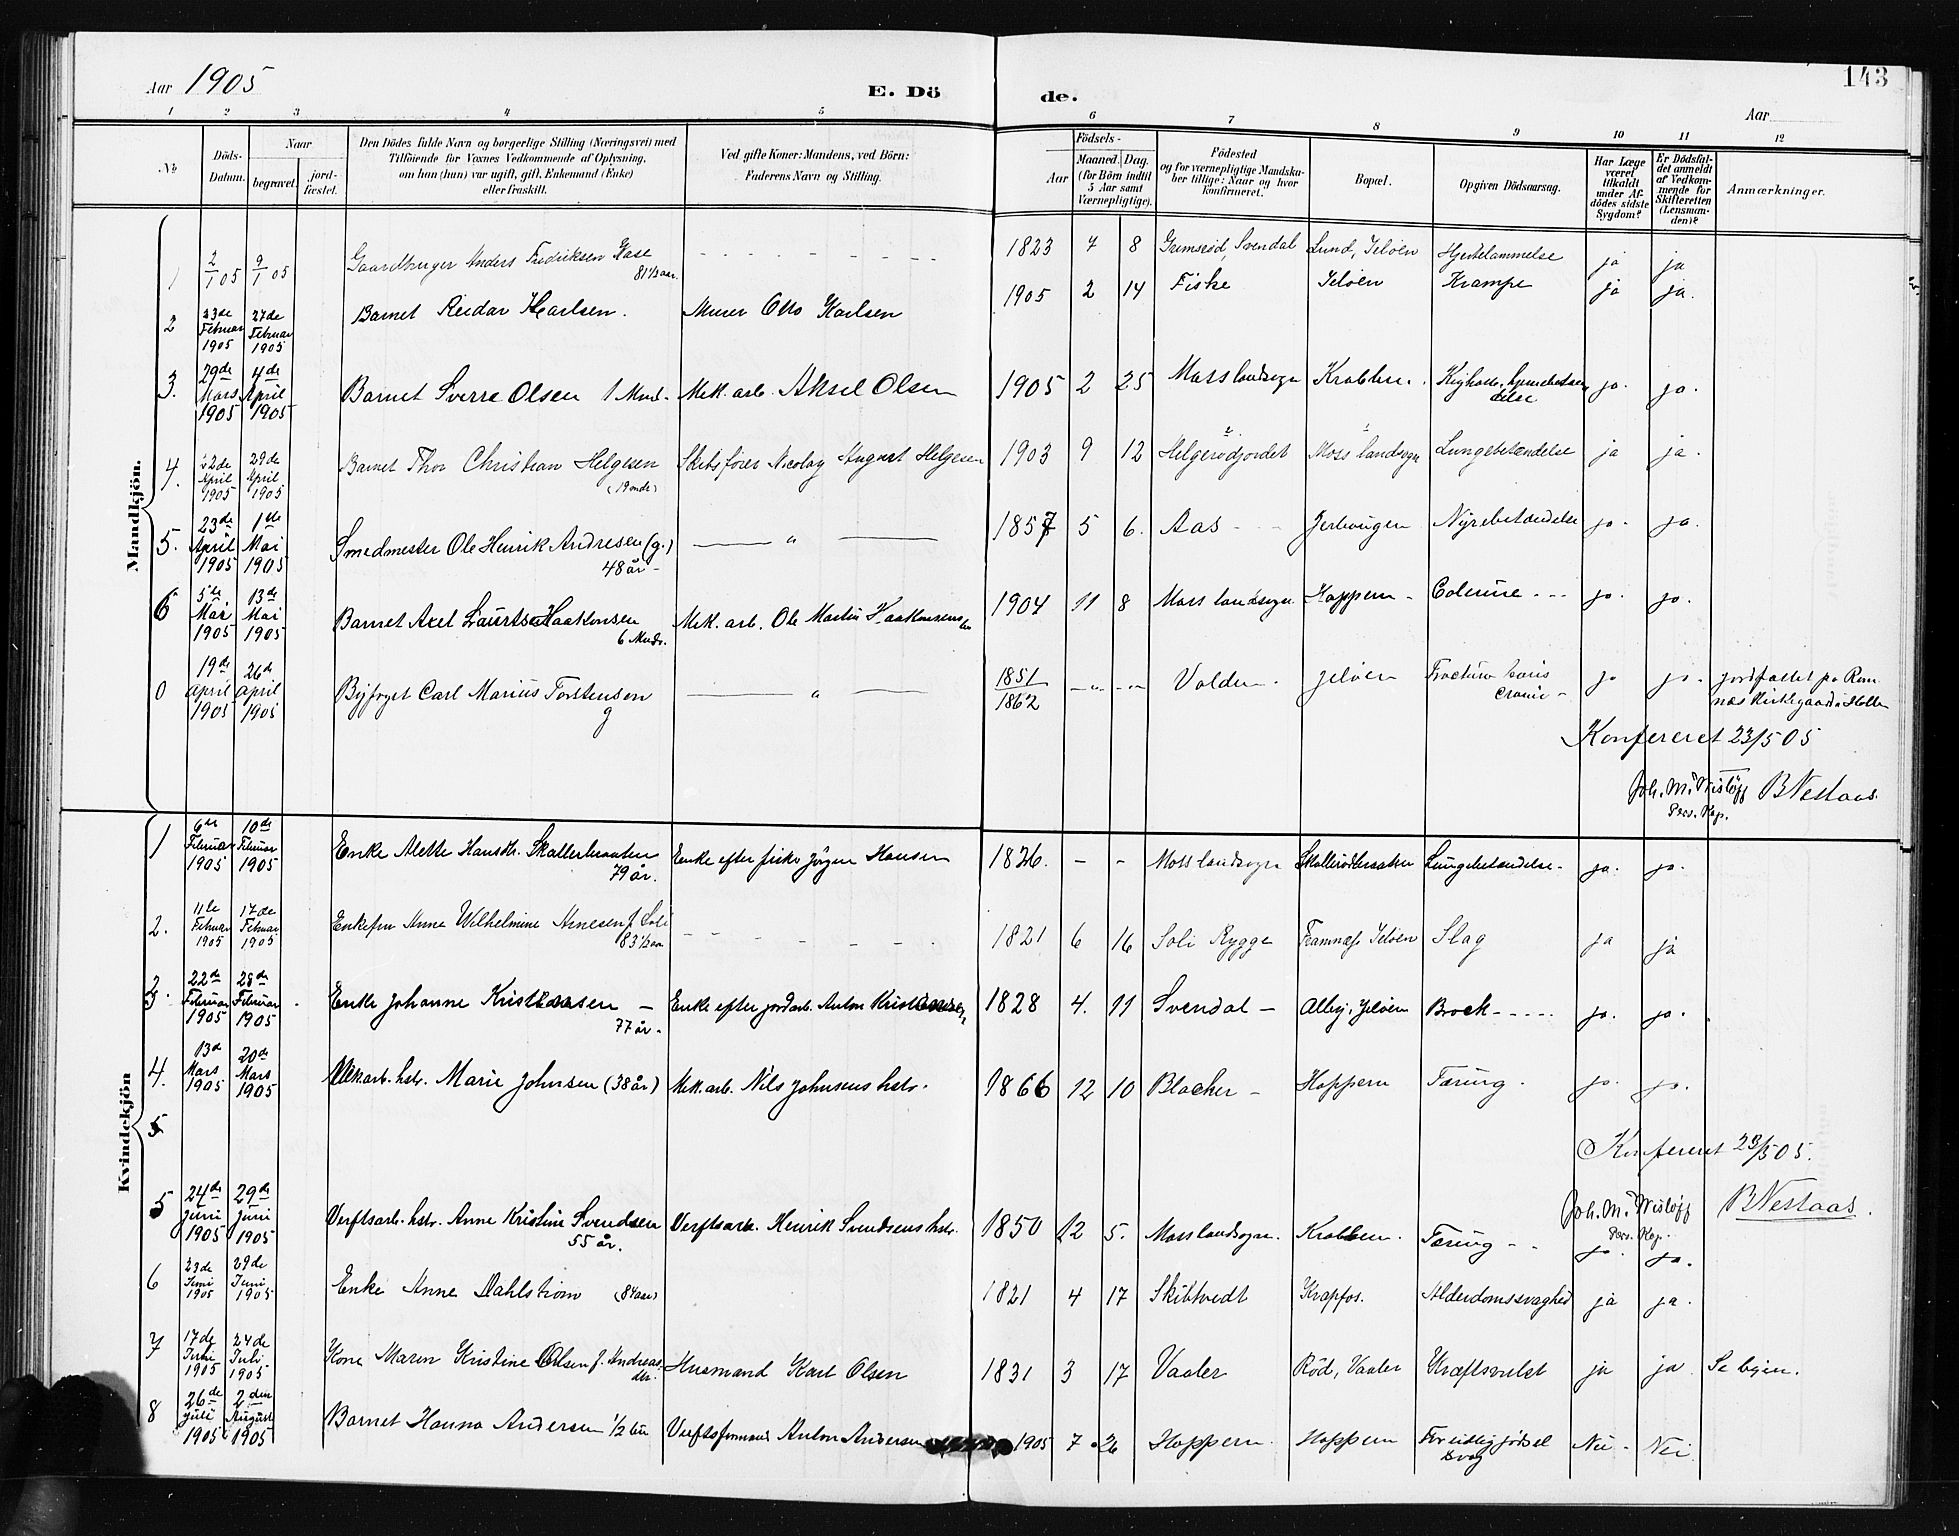 Aar 1905
E. Dö
de.
143
Aar
1 2 3 4 5 6 7 8 9 10 11 12
No
Döds-Datum.
Naar
begravet.
jord-fæstet.
Den Dödes fulde Navn og borgerlige Stilling (Næringsvei) med
Tilföiende for Voxnes Vedkommende af Oplysning,
om han (hun) var ugift, gift, Enkemand (Enke)
eller fraskilt.
Ved gifte Koner: Mandens, ved Börn:
Faderens Navn og Stilling.
Födsels-
Aar
Maaned. Dag.
(for Börn indtil
5 Aar samt
Værnepligtige).
Födested
og for værnepligtige Mandska-
ber tillige: Naar og hvor
konfirmeret.
Bopæl.
Opgiven Dödsaarsag.
Har Læge
været
tilkaldt
under Af-
dödes sidste
Sygdom?
Er Dödsfal-
det anmeldt
af Vedkom-
mende for
Skifteretten
(Lensman-
den)?
Anmærkninger.
Mandkjön.
1 2/1 05 9/1 05 Gaardbruger Anders Fredriksen Kase 81½ aar. 1823 7 8 Grimsrød, Svendal Lund, Jeløen Hjertelammelse ja ja
2 23de Februar 1905 27de Februar 1905 Barnet Reidar Karlsen. Murer Otto Karlsen 1905 2 14 Fiske Jeløen Krampe ja ja.
3. 29de Mars 1905 4de April 1905 Barnet Sverre Olsen 1 Mnd. Mek. arb. Aksel Olsen 1905 2 25 Moss landsogn Krabben. ja. ja.
4. 22de April 1905 29de April 1905 Barnet Thor Christian Helgesen (19 mdr) Skibsfører Nicolay August Helgesen 1903 9 12 Helgerødjordet Moss landsogn Lungebetændelse ja ja.
5. 23de April 1905 1ste Mai 1905 Smedmester Ole Henrik Andresen (g.) 48 år - — " — 1857 5 6. Aas Nyrebetændelse ja. ja.
6 5te Mai 1905 13de Mai 1905 Barnet Axel Lauritz Haakensen 6 Mndr. Mek. arb. Ole Martin Haakensen 1904 11 8 Moss landsogn Hoppern - Colerine - - - ja. ja.
0 19de April 1905 26de April 1905 Byfoged Carl Marius Torstensen g — " — 1851/1862 - " - Volden. Jeløen Fractura basis cranii - ja ja. jordfæstet på Ramnæs Kirkegaard i
Konfereret 23/5 05
Joh. M. Wisløff Pers. Kap. B Nestaas.
Kvindekjön
1 6te Februar 1905 10de Februar 1905 Enke Alette Hansdtr. Skallerbraaten 79 år. Enke efter fisker Jørgen Hansen 1826. - - Moss landsogn Skallerødbraaten Lungebetændelse. ja. ja.
2. 11te Februar 1905 17de Februar 1905 Enkefru Anne Wilhelmine Arnesen f. Soli 83½ aar 1821 6 16 Soli Rygge Framnæs Jeløen Slag ja ja
3. 22de Februar 1905 28de Februar 1905 Enke Johanne Kristiansen 77 år. Enke efter jordarb. Anton Kristiansen 1828 4. 11 Svendal - Alby, Jeløen Brock ja. ja.
4. 13de Mars 1905 20de Mars 1905 Mek.arb. hstr. Marie Johnsen (38 år) Mek.arb. Nils Johnsens hstr. 1866 12 10 Blacker - Hoppern Tæring. ja. ja.
5
Konfereret 23/5 05.
Joh. M. Wisløff Pers. Kap. B Nestaas.
5 24de Juni 1905 29de Juni 1905 Verftsarb. hstr. Anne Kristine Svendsen 55 år. Verftsarb. Henrik Svendsens hstr. 1850 12 5. Moss landsogn. Krabben. Tæring ja. ja.
6 23de Juni 1905 29de Juni 1905 Enke Anne Dahlstrøm (84 aar) 1821 4 17 Skibtvedt Krapfos. Alderdomssvaghed ja ja.
7 17de Juli 1905 24de Juli 1905 Kone Maren Kristine Olsen f. Andreasdtr. Husmand Karl Olsen 1831 3 17 Vaaler Rød, Vaaler Kræftsvulst ja ja Se byen.
8 26de Juli 1905 2den August 1905 Barnet Hanna Andersen ½ tim Verftsformand Anton Andersen 1905 7 26 Hoppern. Hoppern For tidlig fødsel svag Nei. Nei